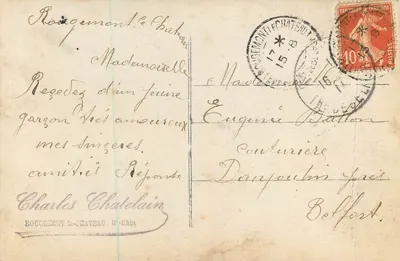 Rougemont le Chateau
Mademoiselle
Recevez d'un jeune
garçon très amoureux
mes sincères
amitiés Réponse
Charles Chatelain
ROUGEMONT le-CHATEAU
ROUGEMONT LE CHATEAU
17
15 -8
16
10
Mademoiselle
Eugénie
Couturière
Danjoutin près
Belfort.